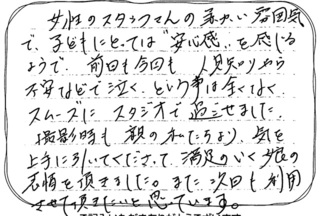 女性のスタッフさんの柔かい雰囲気
で、子どもにとっては"安心感"を感じる
ようで、前回も今回も人見知りから
不安などで泣く、という事は全くなく
スムーズにスタジオで過ごせました。
撮影時も親の私たちより、気を
上手に引いてくださって、満足のいく娘の
表情を頂きました。また次回も利用
させて頂きたいと思っています。